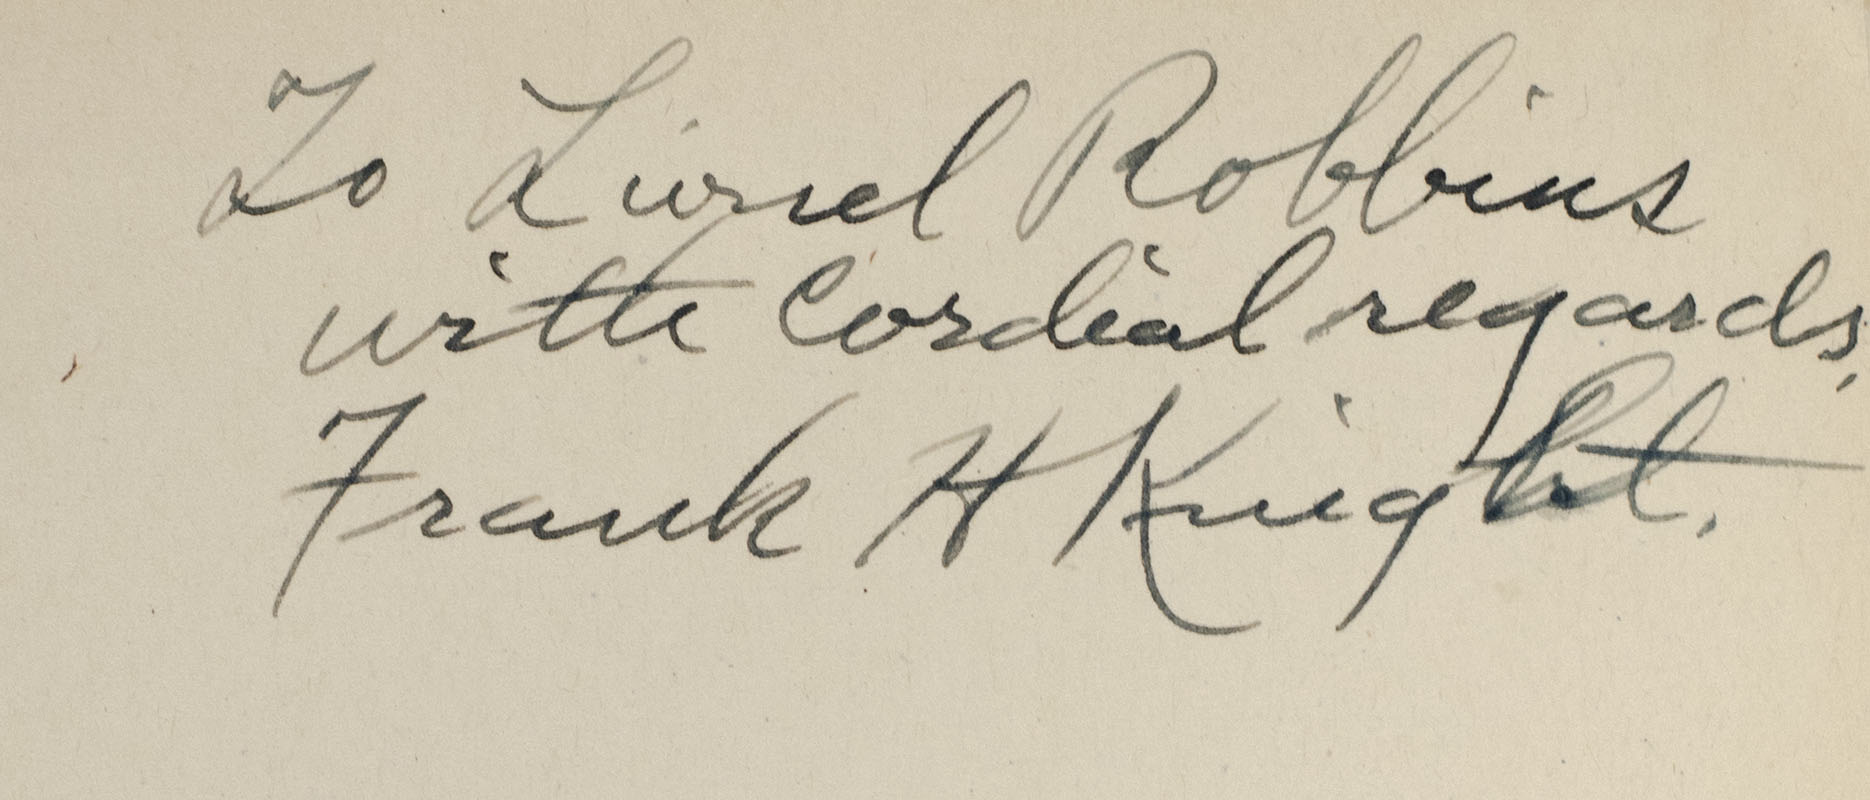 To Lionel Robbins
with cordial regards,
Frank H Knight.